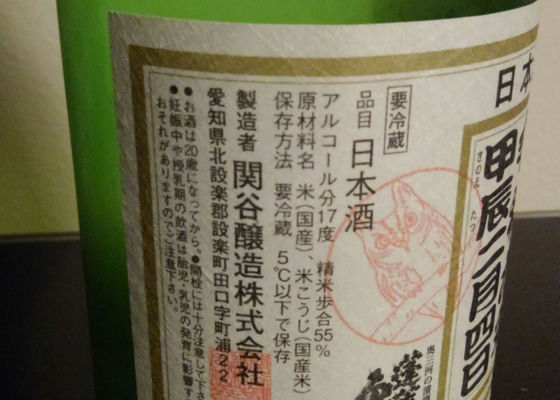 日本
甲辰二月四日
きのえ たつ
奥三河の清酒
要冷蔵
品目 日本酒
アルコール分17度 精米歩合55%
原材料名 米(国産)、米こうじ(国産米)
保存方法 要冷蔵 5℃以下で保存
製造者 関谷醸造株式会社
愛知県北設楽郡設楽町田口字町浦22
●お酒は20歳になってから。●開栓には十分注意して下さ
●妊娠中や授乳期の飲酒は胎児・乳児の発育に影響す
おそれがありますのでご注意下さい。